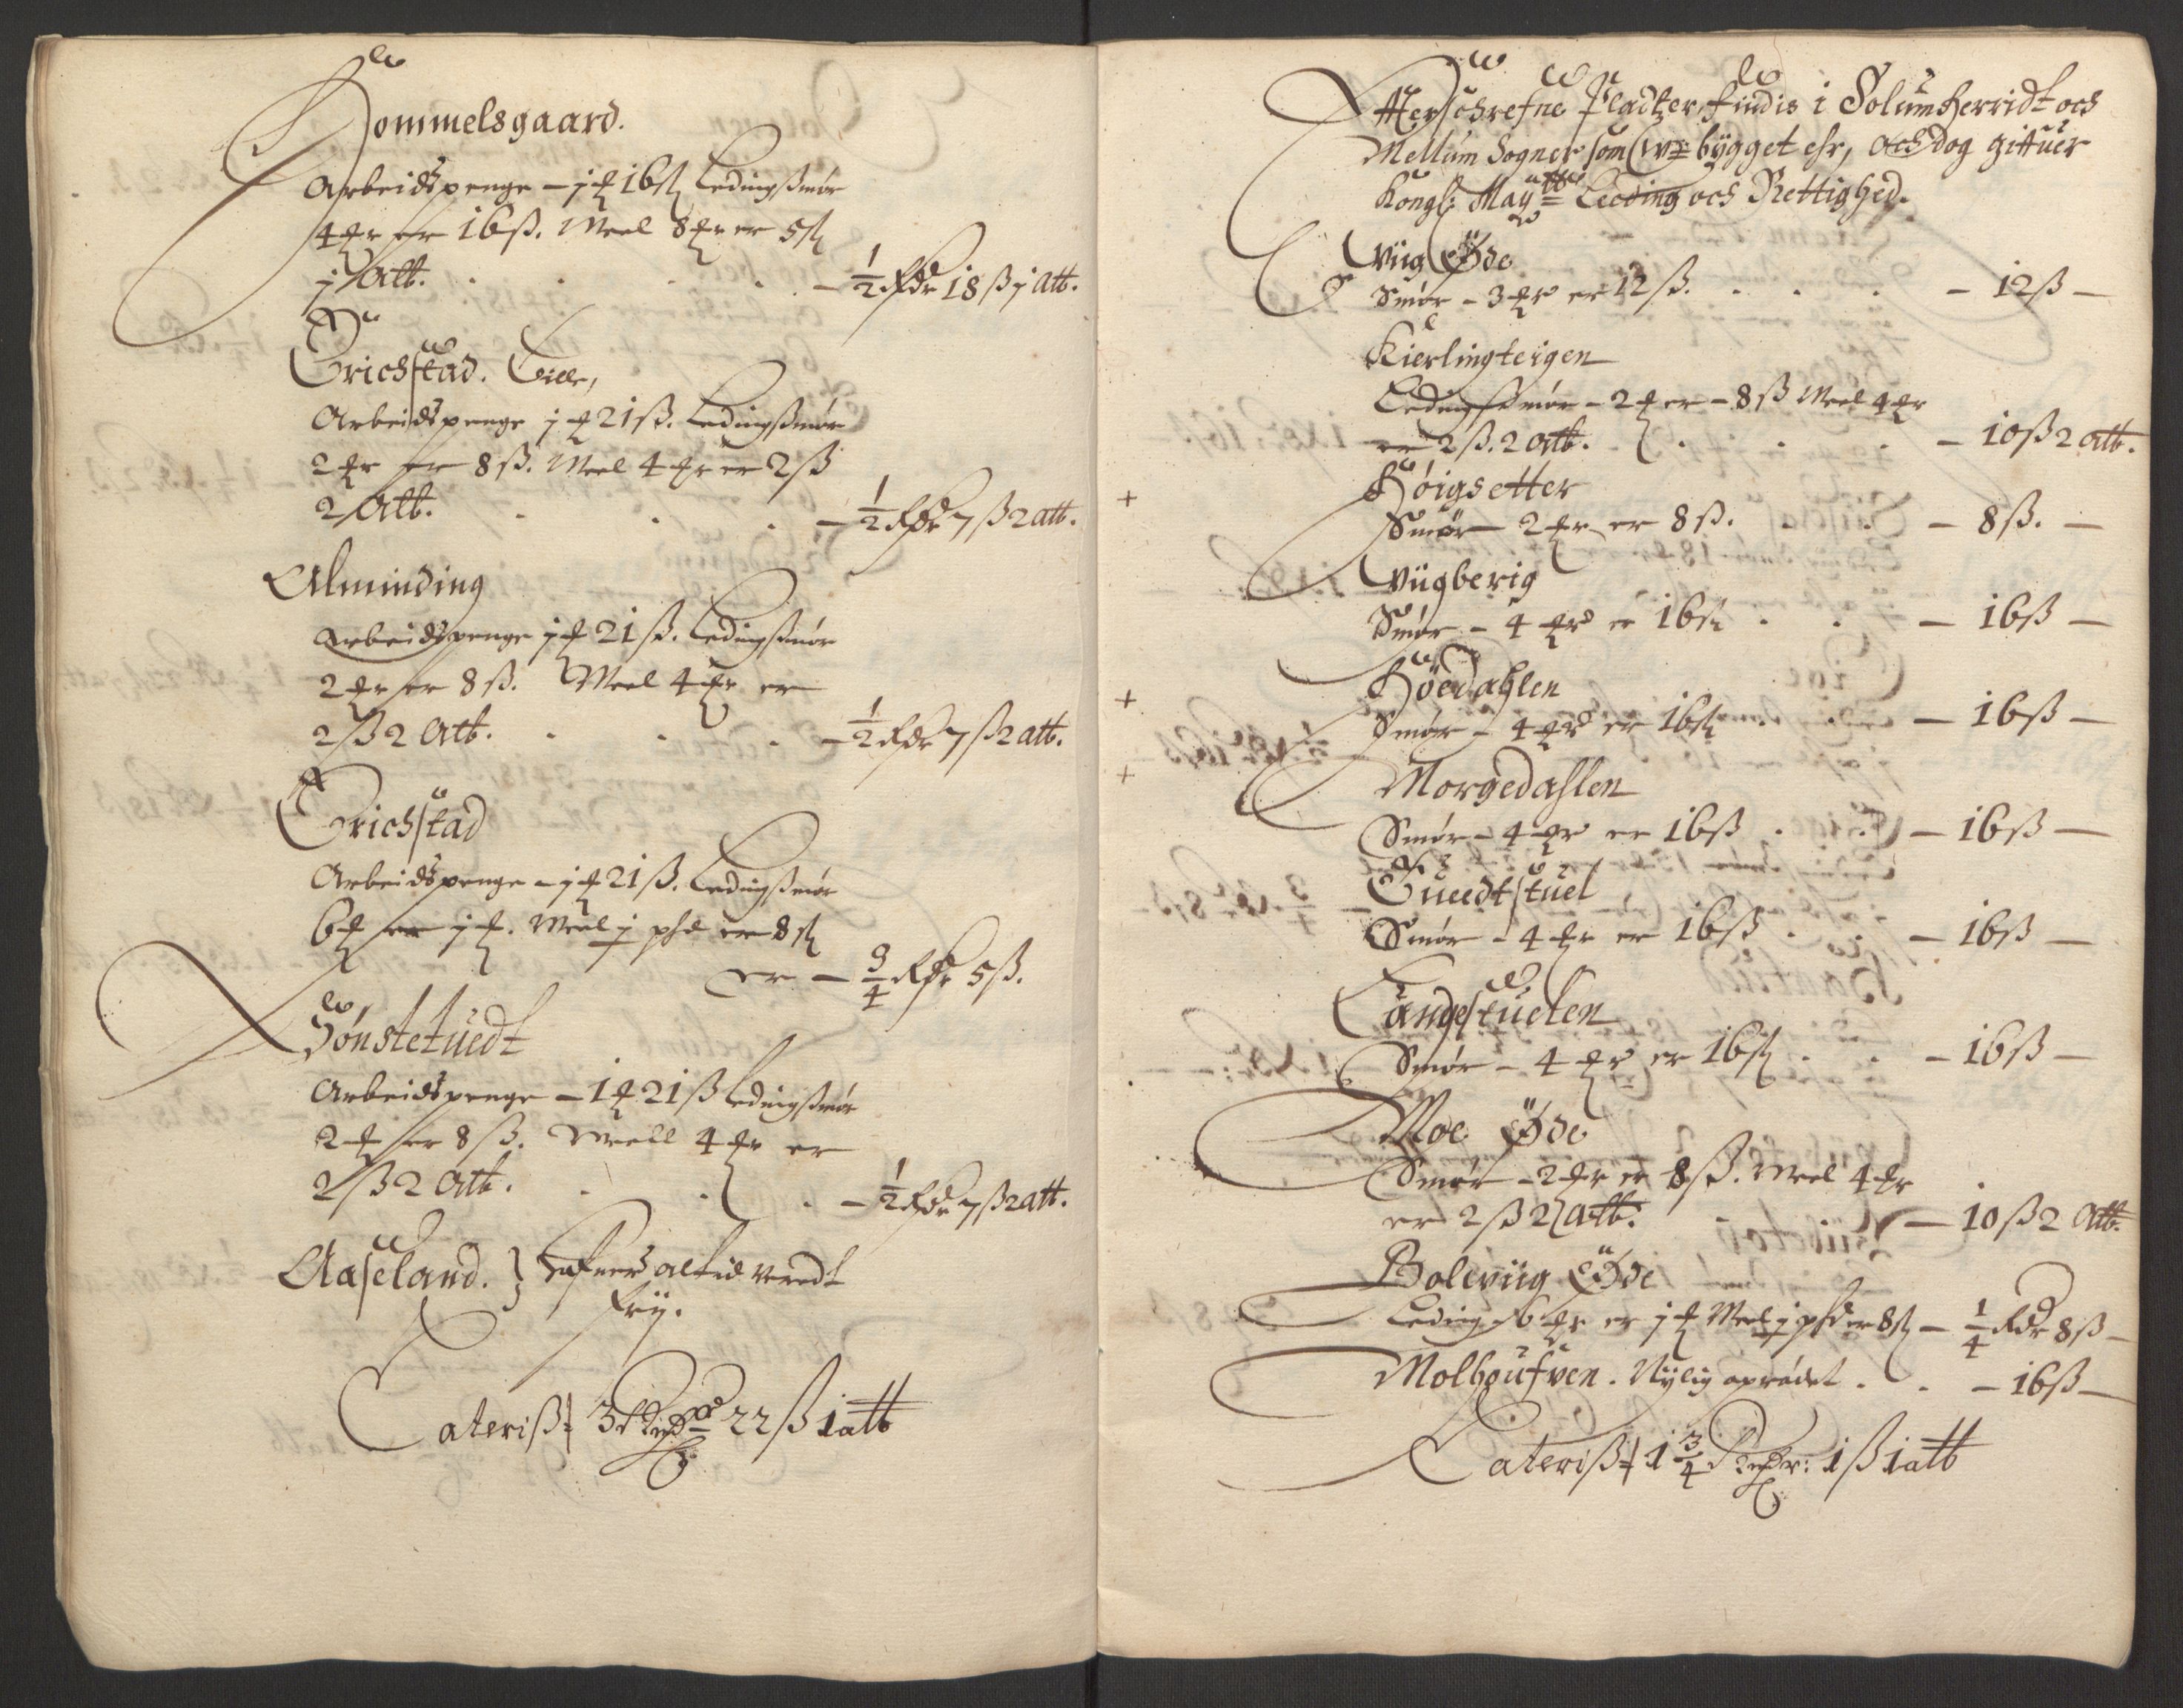 Hommelsgaard.
Arbeidspenge – j ꝑ 16 ß Ledingsmør
4 ꝑr er 16 ß. Meel 8 ꝑr er 5 ß
j Alb. – ½ Rdr 18 ß j alb.
Erichstad. Lille,
Arbeidspenge j ꝑ 21 ß. Ledingsmør
2 ꝑr er 8 ß. Meel 4 ꝑr er 2 ß
2 Alb. – ½ Rdr 7 ß 2 alb.
Alminding
Arbeidspenge j ꝑ 21 ß. Ledingsmør
2 ꝑr er 8 ß. Meel 4 ꝑr er
2 ß 2 Alb. – ½ Rdr 7 ß 2 alb.
Erichstad
Arbeidspenge – j ꝑ 21 ß. Ledingsmør
6 ꝑ er j ꝑ. Meel j pd er 8 ß
er – ¾ Rdr 5 ß.
Hønstetuedt
Arbeidspenge – 1 ꝑ 21 ß Ledingsmør
2 ꝑ er 8 ß. Meell 4 ꝑr er
2 ß 2 Alb. – ½ Rdr 7 ß 2 alb.
Aaseland. } Hafuer altid veredt
frij.
Lateriß 3 Rixdr 22 ß 1 alb
Effterschrefne Pladtzer findis i Solumherridt och
Mellum Sogner som Wbygget ehr, och dog giffuer
Kongl: May: Leeding och Rettighed.
Wiig Øde
Smør – 3 ꝑr er 12 ß. – 12 ß –
Kierlingteigen
Ledingsmør – 2 ꝑ er – 8 ß Meel 4 ꝑr
er 2 ß. 2 alb. – 10 ß 2 alb.
+ Høigsetter
Smør – 2 ꝑr er 8 ß. – 8 ß. –
Wiigberig
Smør – 4 ꝑr er 16 ß – 16 ß –
+ Høedahlen
Smør – 4 ꝑr er 16 ß – 16 ß –
+ Morgedahlen
Smør – 4 ꝑr er 16 ß – 16 ß –
Tueedtstuel
Smør – 4 ꝑr er 16 ß – 16 ß –
Langestuelen
Smør – 4 ꝑr er 16 ß – 16 ß –
Moe Øde
Smør – 2 ꝑr er 8 ß. Meel 4 ꝑr
er 2 ß 2 alb. – 10 ß 2 Alb.
Boleviig Øde
Leding 6 ꝑr er j ꝑ Meel j pd er 8 ß – ¼ Rdr 8 ß –
Molhoufven. Nylig oprødet – 16 ß –
Lateriß 1 ¾ Rixdr: 1 ß 1 alb